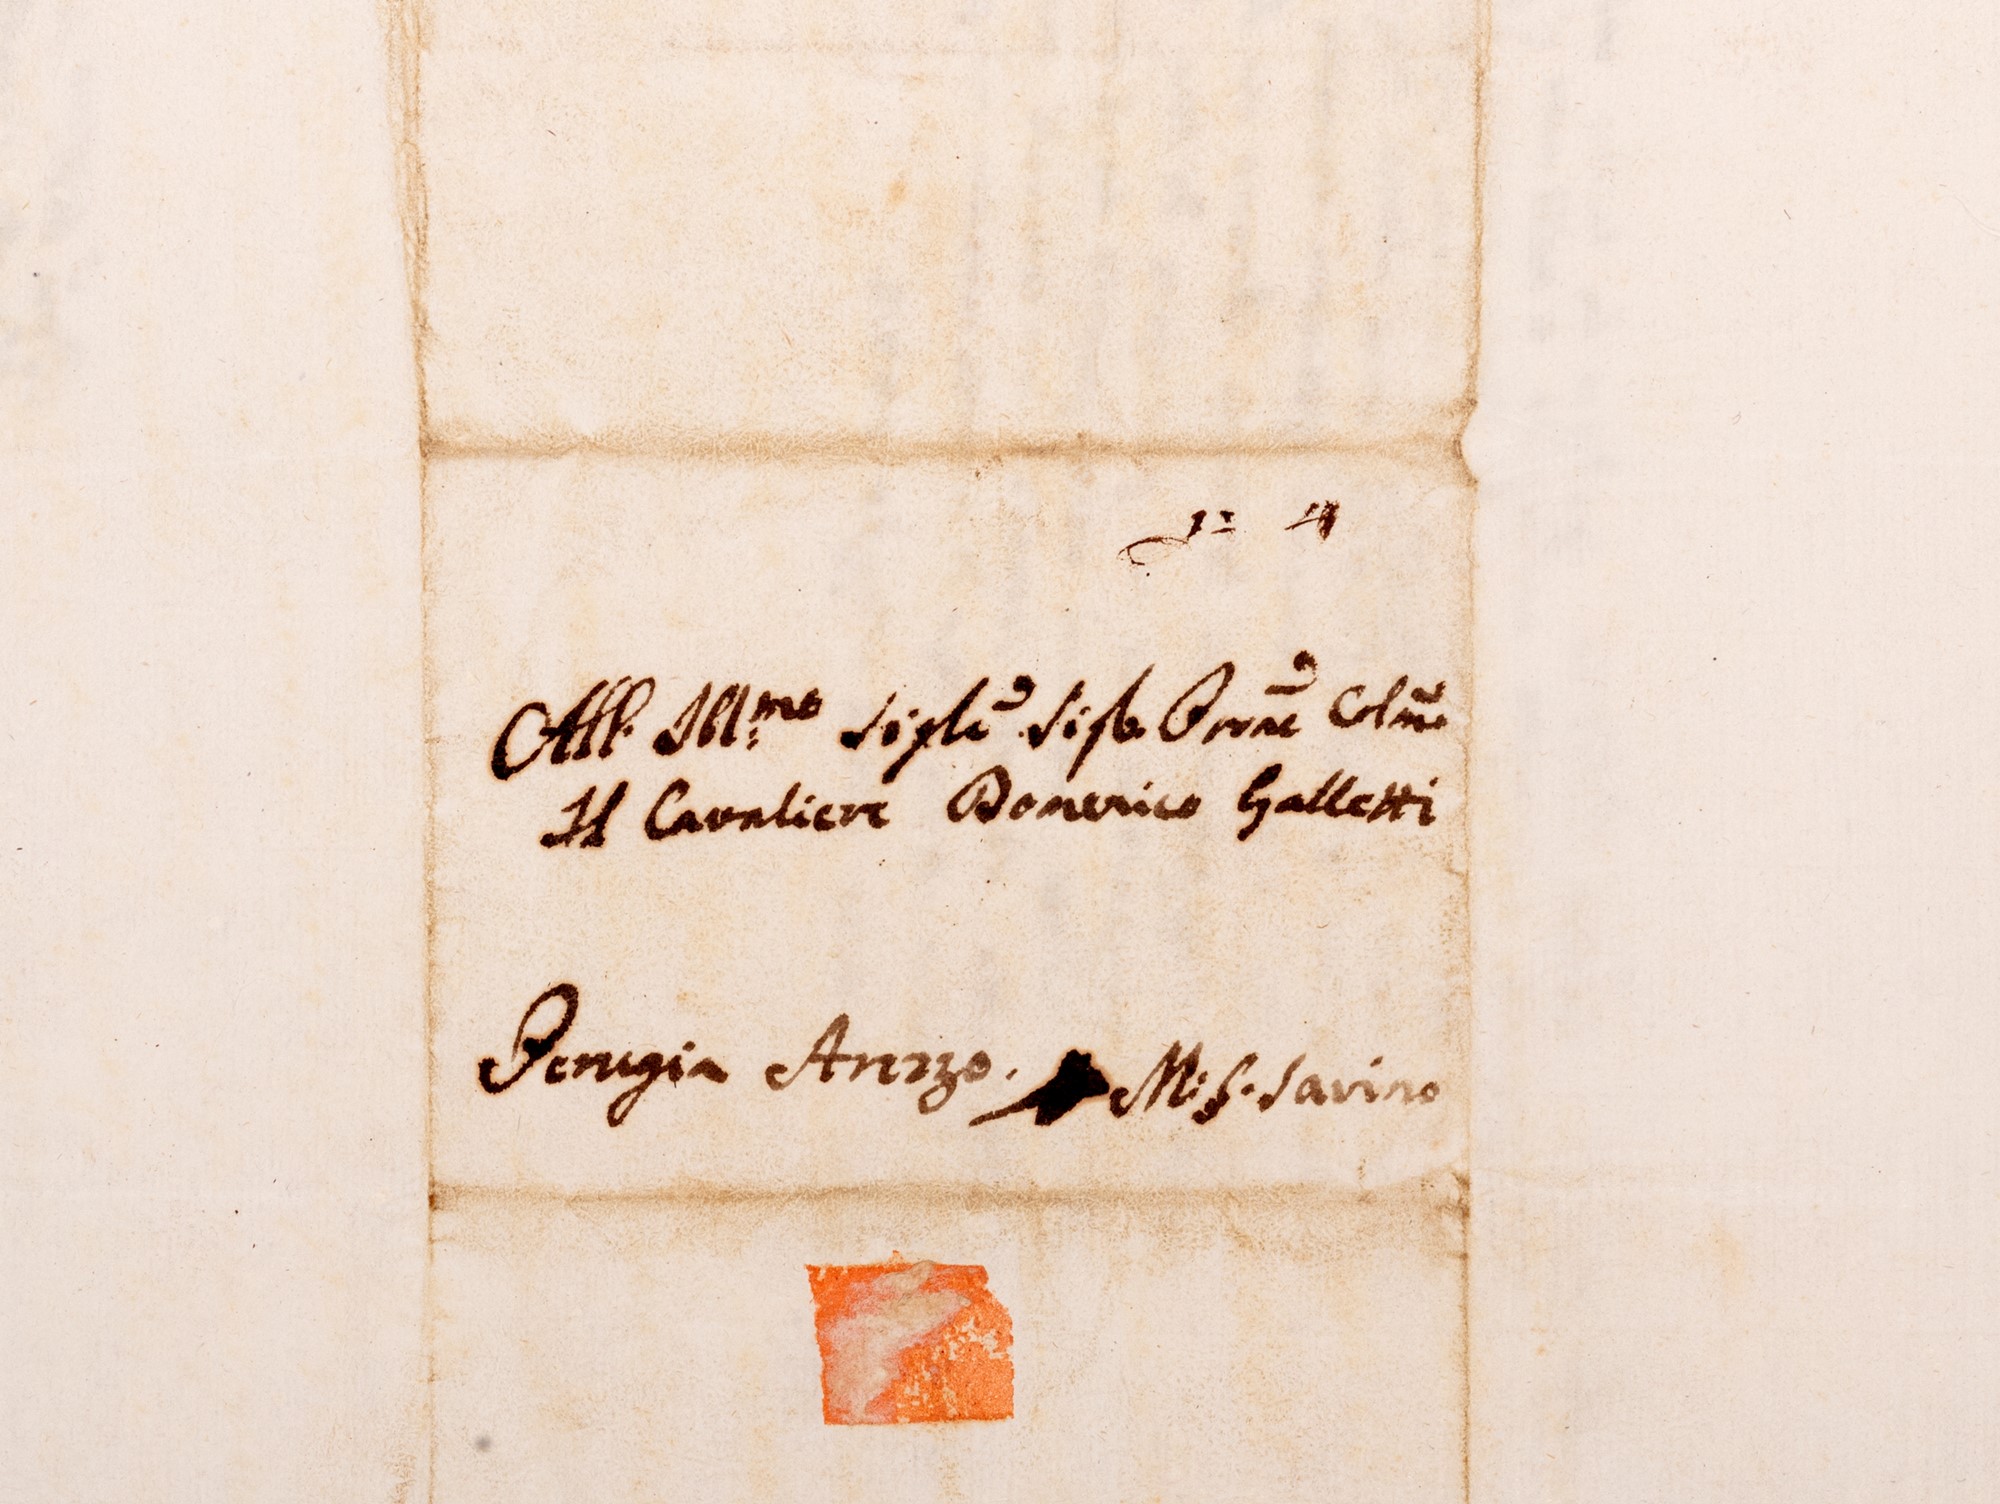 All Ill:mo Sig.re Sig.e Prone Colmo
Il Cavaliere Domenico Galletti
Perugia Arezzo. M: S. Savino